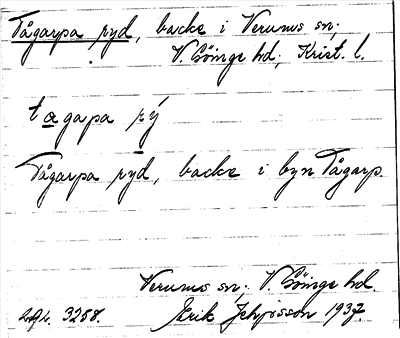 Tågarpa ryd, backe i Verums sn.
V. Göinge hd., Krist. l.
tagapa rý
Tågarpa ryd, backe i byn Tågarp.
Verums sn. V. Göinge hd.
3258. Erik Jeppsson 1937.